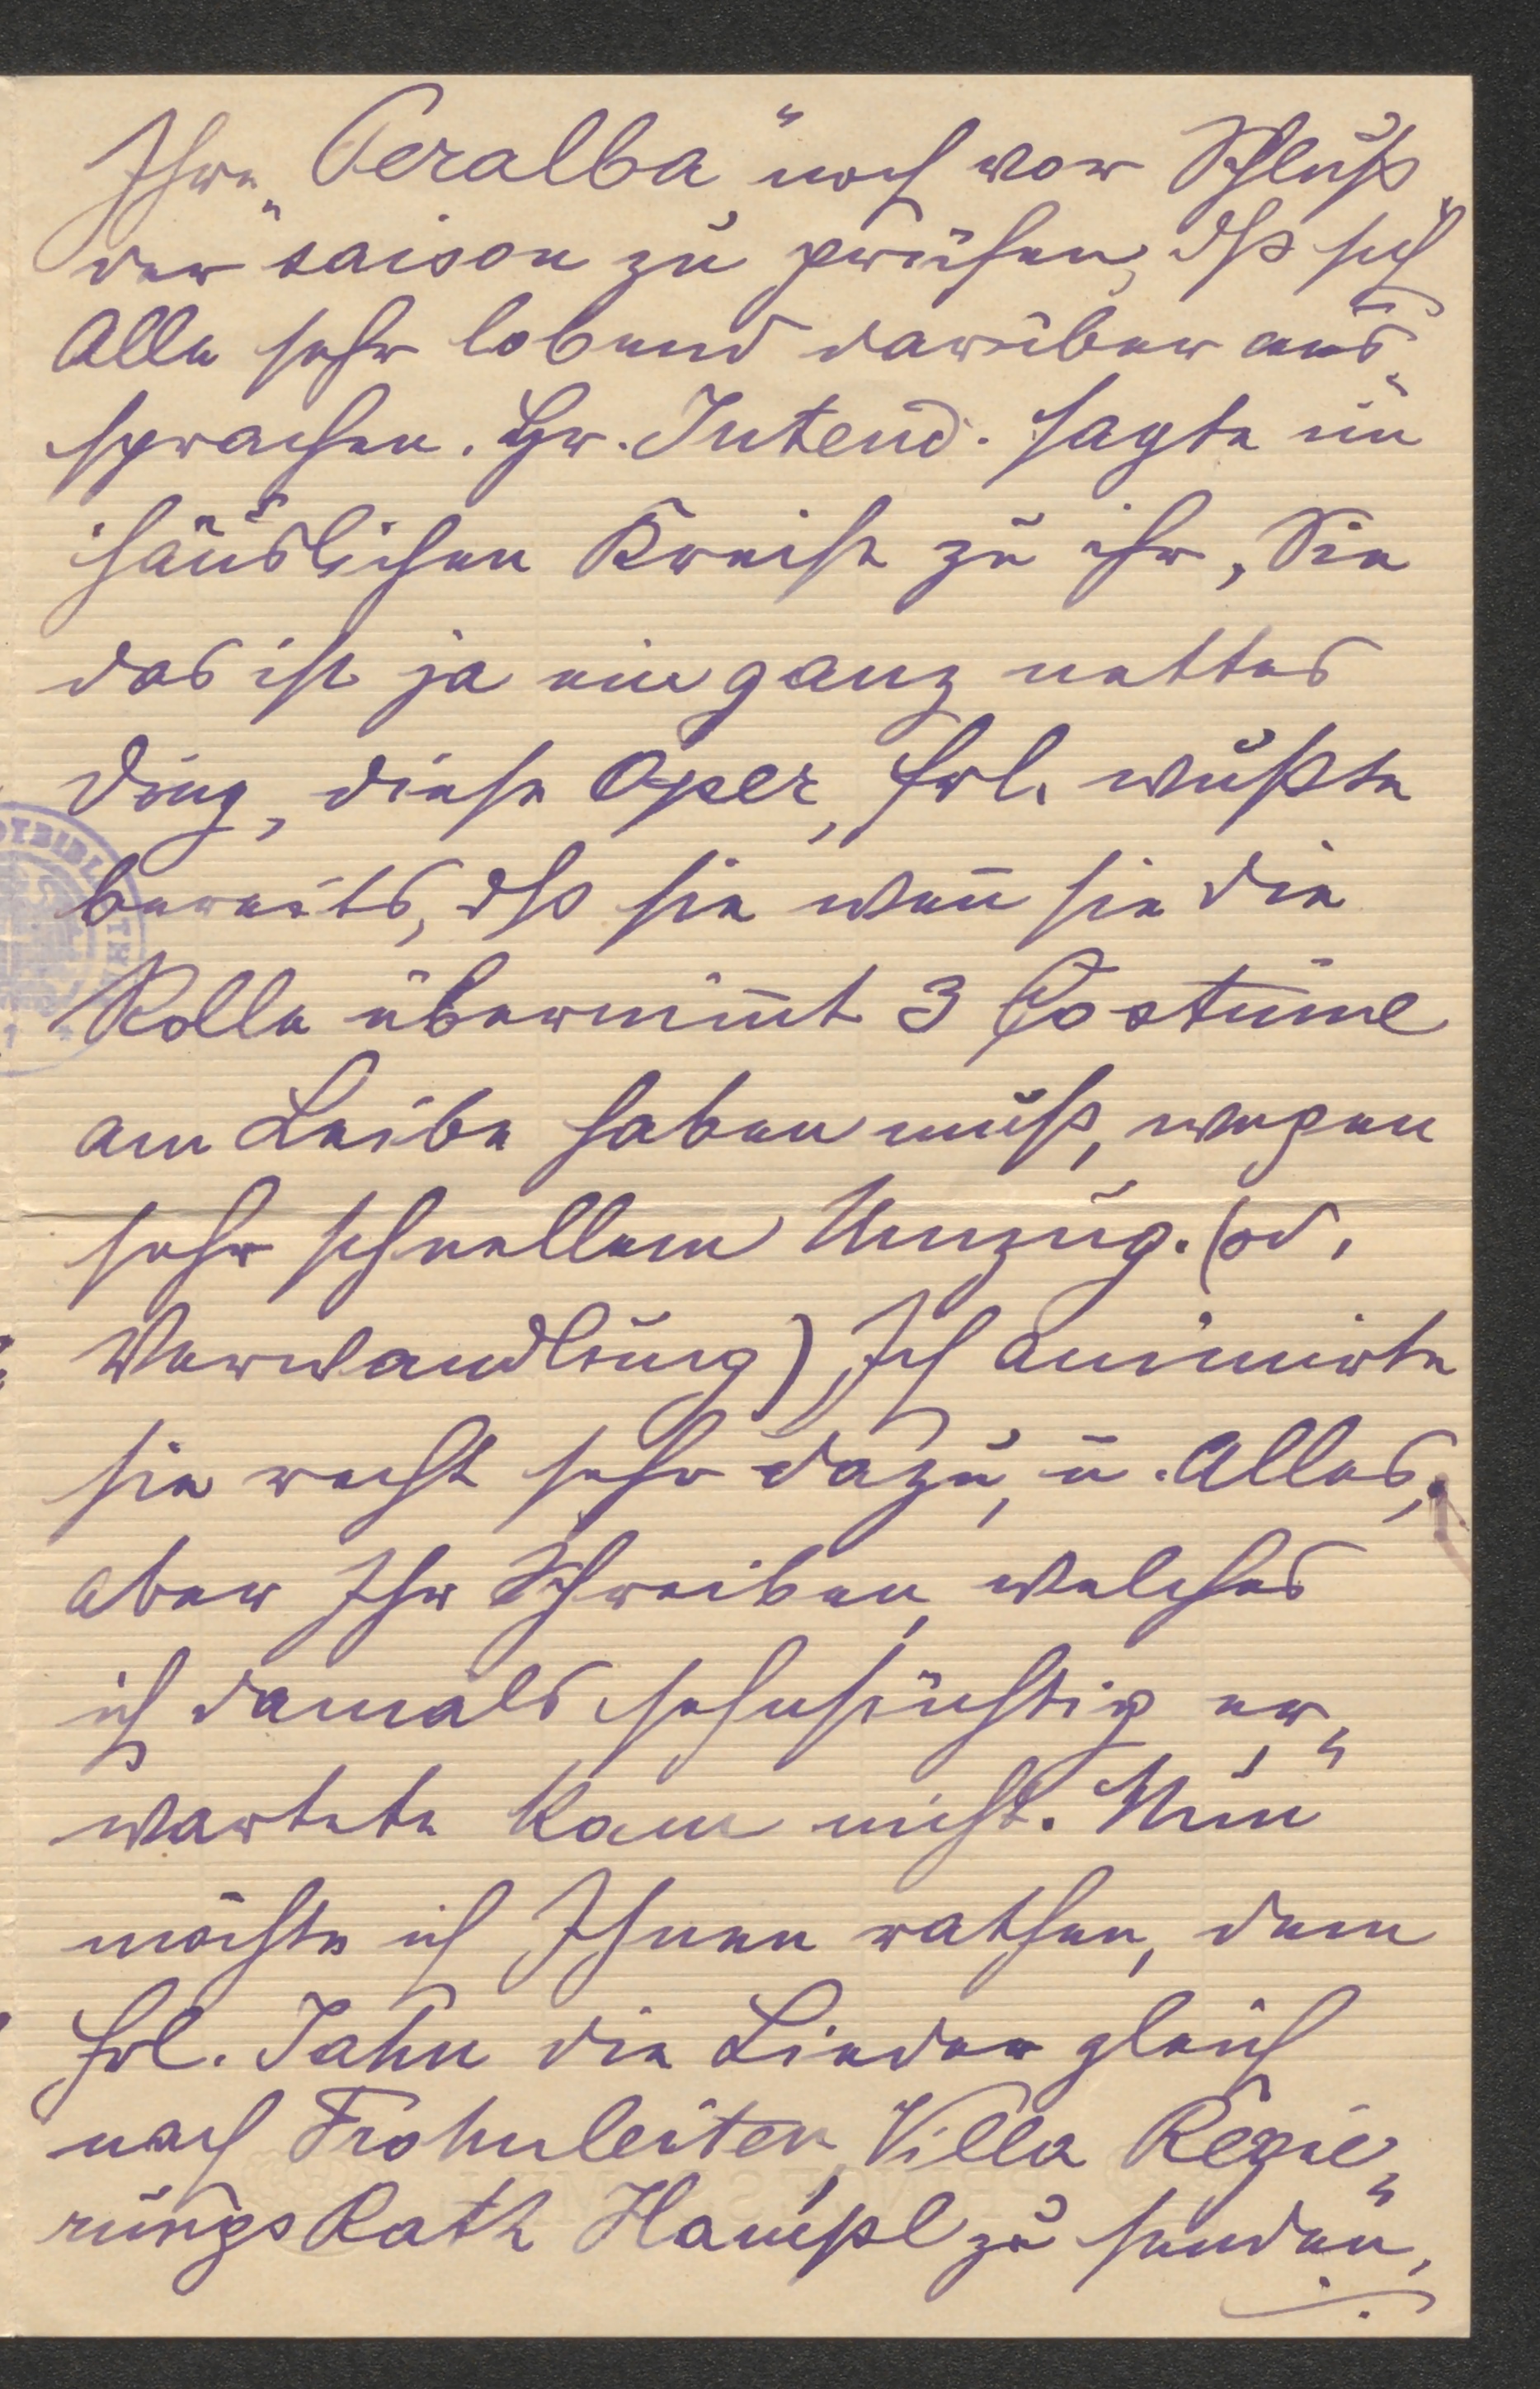 Ihre „Peralba" noch vor Schluß
der saison zu prüfen, dß sich
Alle sehr lobend darüber aus„
sprachen. Hr. Intend. sagte im
häuslichen Kreise zu ihr, Sie
das ist ja ein ganz nettes
Ding, diese Oper, Frl. wußte
bereits, dß sie wen̄ sie die
Rolle übernim̄t 3 Costüme
am Leibe haben muß, wegen
sehr schnellem Umzug. (od.
Verwandlung) Ich animirte
sie recht sehr dazu, u. Alles,
aber Ihr Schreiben, welches
ich damals sehnsüchtig er„
wartete kam nicht. Nun
möchte ich Ihnen rathen, dem
Frl. Jahn die Lieder gleich
nach Frohnleiten, Villa Regie„
rungs Rath Hampl zu senden,